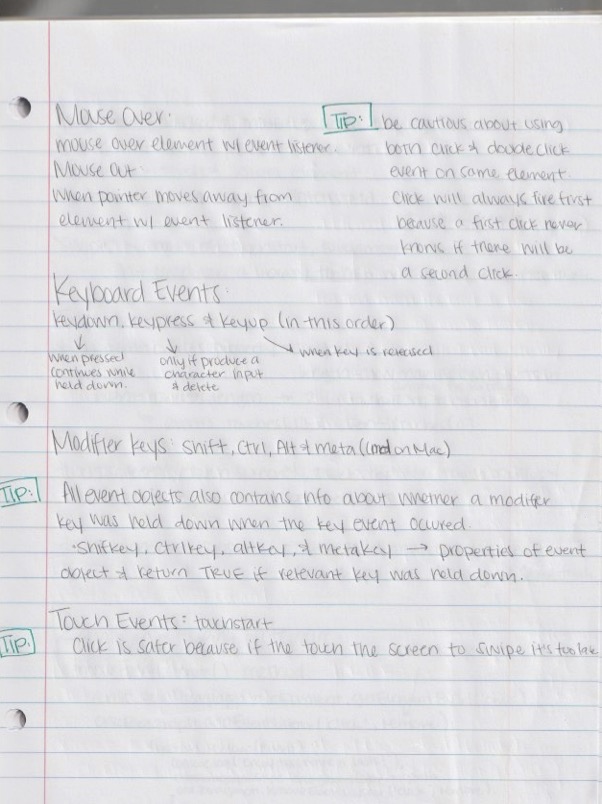 Mouse Over:
mouse over element w/ event listener.
Mouse Out
When pointer moves away from
element w/ event listener.
TIP: be cautious about using
both click & double click
event on same element.
Click will always fire first
because a first click never
knows if there will be
a second click.
Keyboard Events:
keydown, keypress & keyup (in this order)
when pressed
continues while
held down.
only if produce a
character input
& delete
when key is released
Modifier keys: shift, Ctrl, Alt & meta (Cmd on Mac)
TIP: All event objects also contains info about whether a modifer
key was held down when the key event occured.
·shiftkey, ctrlkey, altkey, & metakey → properties of event
object & return TRUE if relevant key was held down.
Touch Events: touchstart
TIP: Click is safer because if the touch the screen to swipe it's too late